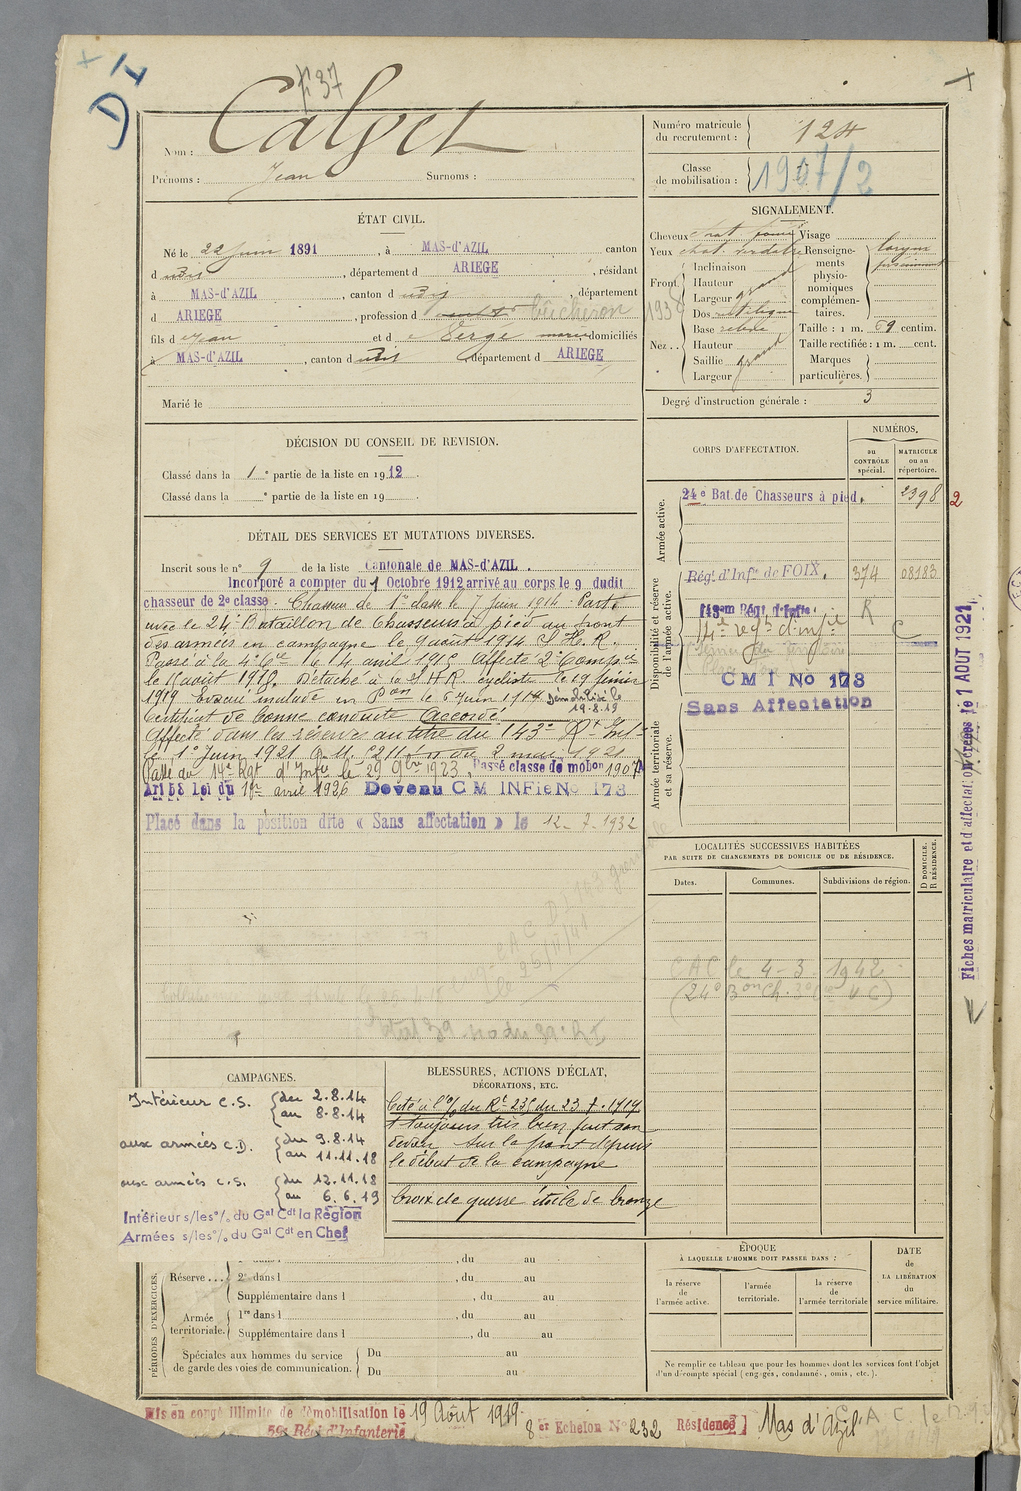 D I
f 37
Nom : Calvet
Prénoms : Jean Surnoms :
Numéro matricule du recrutement : 124
Classe de mobilisation : 1907/2
ÉTAT CIVIL.
Né le 22 Juin 1891, à MAS-d'AZIL, canton
d udit, département d ARIEGE, résidant
à MAS-d'AZIL, canton d udit, département
d ARIEGE, profession d bûcheron
fils d e Jean et d e Vergé marie domiciliés
à MAS-d'AZIL, canton d udit département d ARIEGE
Marié le
SIGNALEMENT.
Cheveux chat. foncé Visage
Yeux chat. verdâtre Renseigne-
Front Inclinaison ments
Hauteur grand physio-
Largeur nomiques
1938
Dos complémen-
Base taires. Taille : 1 m. 69 centim.
Nez .. Hauteur grand Taille rectifiée : 1 m. cent.
Saillie Marques
Largeur particulières.
Degré d'instruction générale : 3
DÉCISION DU CONSEIL DE REVISION.
Classé dans la 1e partie de la liste en 1912.
Classé dans la e partie de la liste en 19
DÉTAIL DES SERVICES ET MUTATIONS DIVERSES.
Inscrit sous le n° 9 de la liste Cantonale de MAS-d'AZIL.
Incorporé a compter du 1 Octobre 1912 arrivé au corps le 9 dudit
chasseur de 2e classe. Chasseur de 1re classe le 7 Juin 1914. Parti
avec le 24e Bataillon de Chasseurs à pied au front
des armées en campagne le 9 août 1914 S. H. R.
Passé à la 4e Cie le 4 avril 1915 affecté 2e Compie
le août 1918. Détaché à la S H R cycliste le 19 février
1919 Evacué malade le 6 juin 1919 démobilisé le
19.8.19
Certificat de bonne conduite Accordé
Affecté dans les réserves au titre du 143e Rt Inf
le 1er Juin 1921 du 2 mai 1921
Passé au 14e Rgt d'Infie le 29 9bre 1923. Passé classe de mobon 1907
Art 58 Loi du 1er avril 1926 Devenu C M INFie No 178
Placé dans la position dite « Sans affectation » le 12-7-1932
CORPS D'AFFECTATION.
NUMÉROS,
au CONTRÔLE spécial.
MATRICULE ou au répertoire.
Armée active.
24e Bat. de Chasseurs à pied. 2398 2
Disponibilité et réserve de l'armée active.
Régt d'Infie de FOIX. 374 08183
143em Régt d'Infie. R
14e régt d'infie C
C M I No 178
Sans Affectation
Armée territoriale et sa réserve.
Fiches matriculaire et d'affectation créées le 1 AOUT 1921
LOCALITÉS SUCCESSIVES HABITÉES
PAR SUITE DE CHANGEMENTS DE DOMICILE OU DE RÉSIDENCE.
Dates. Communes. Subdivisions de région. D DOMICILE. R RÉSIDENCE.
CAC le 4-3-1942
CAMPAGNES.
Intérieur C.S. du 2.8.14
au 8.8.14
aux armées C.D. du 9.8.14
au 11.11.18
aux armées C.S. du 12.11.18
au 6.6.19
Intérieur s/les % du Gal Cdt la Région
Armées s/les % du Gal Cdt en Chef
BLESSURES, ACTIONS D'ÉCLAT,
DÉCORATIONS, ETC.
Cité à l'% du Rt 235 du 23.7.1919
A toujours très bien fait son
devoir sur le front depuis
le début de la campagne
Croix de guerre étoile de bronze
PÉRIODES D'EXERCICES.
Réserve ...
dans l , du au
2e dans l , du au
Supplémentaire dans l , du au
Armée territoriale.
1re dans l , du au
Supplémentaire dans l , du au
Spéciales aux hommes du service Du au
de garde des voies de communication. Du au
ÉPOQUE
À LAQUELLE L'HOMME DOIT PASSER DANS :
la réserve de l'armée active.
l'armée territoriale.
la réserve de l'armée territoriale
DATE de LA LIBÉRATION du service militaire.
Ne remplir ce tableau que pour les hommes dont les services font l'objet
d'un décompte spécial (engagés, condamnés, omis, etc.).
Mis en congé illimité de démobilisation le 19 Août 1919.
59e Régt d'Infanterie
8er Echelon No 232 Résidence] Mas d'Azil